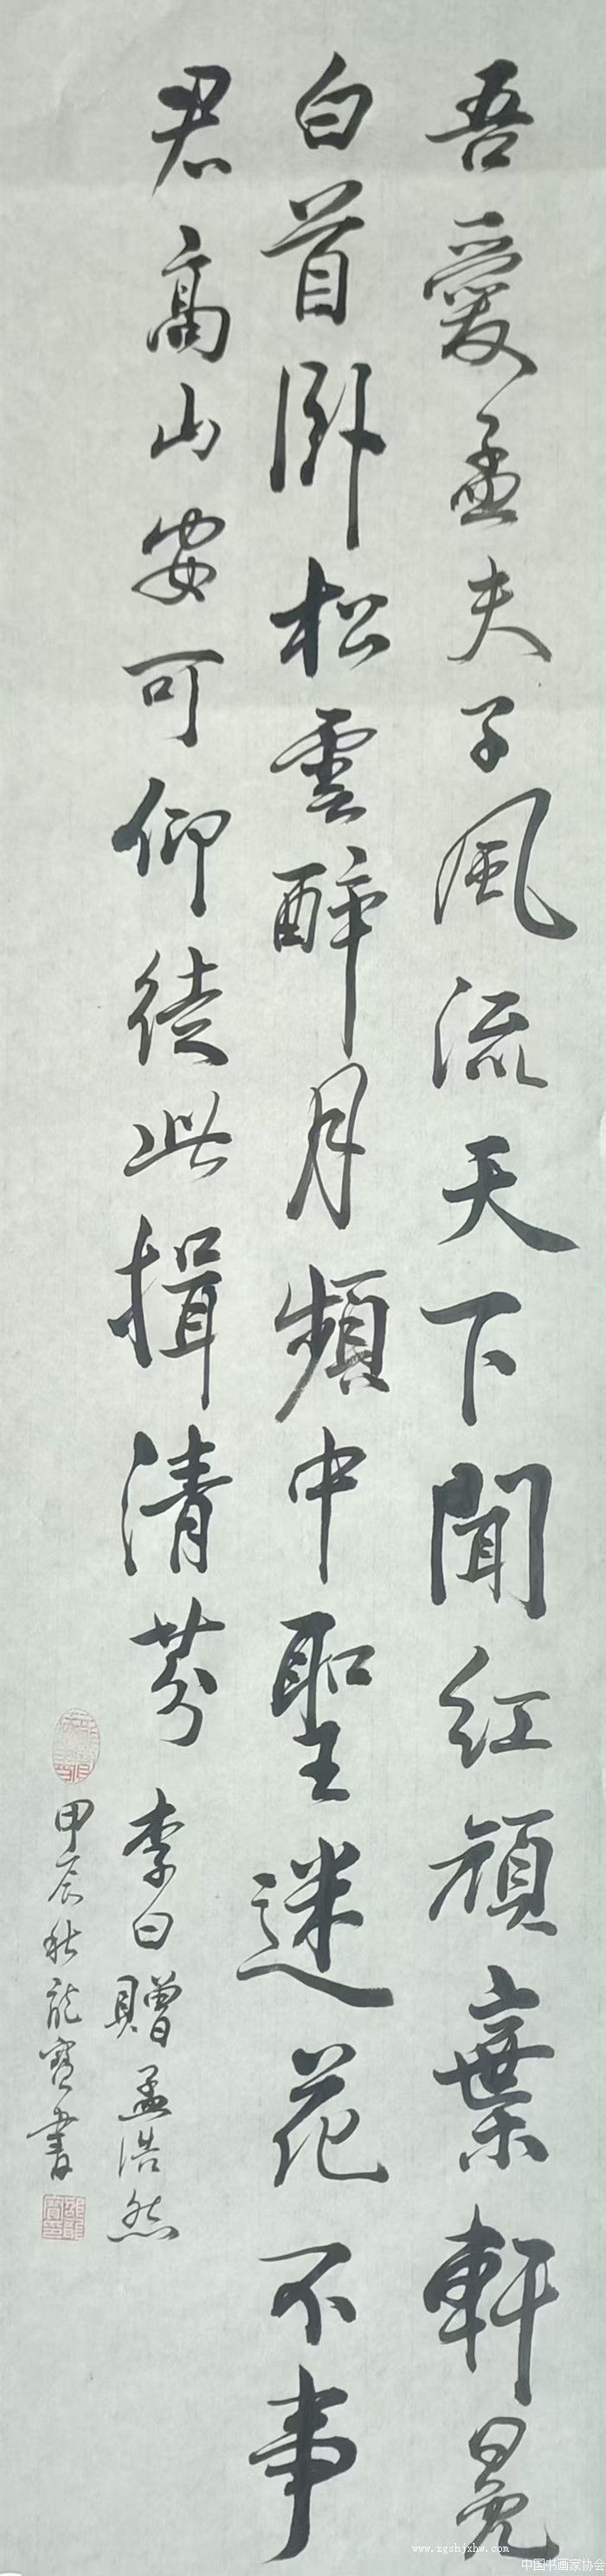 吾愛孟夫子風流天下聞紅顔棄軒冕
白首卧松雲醉月頻中聖迷花不事
君高山安可仰徒此揖清芬
李白贈孟浩然
甲辰秋龍寶書
www.zgshjxhw.com
中国书画家协会